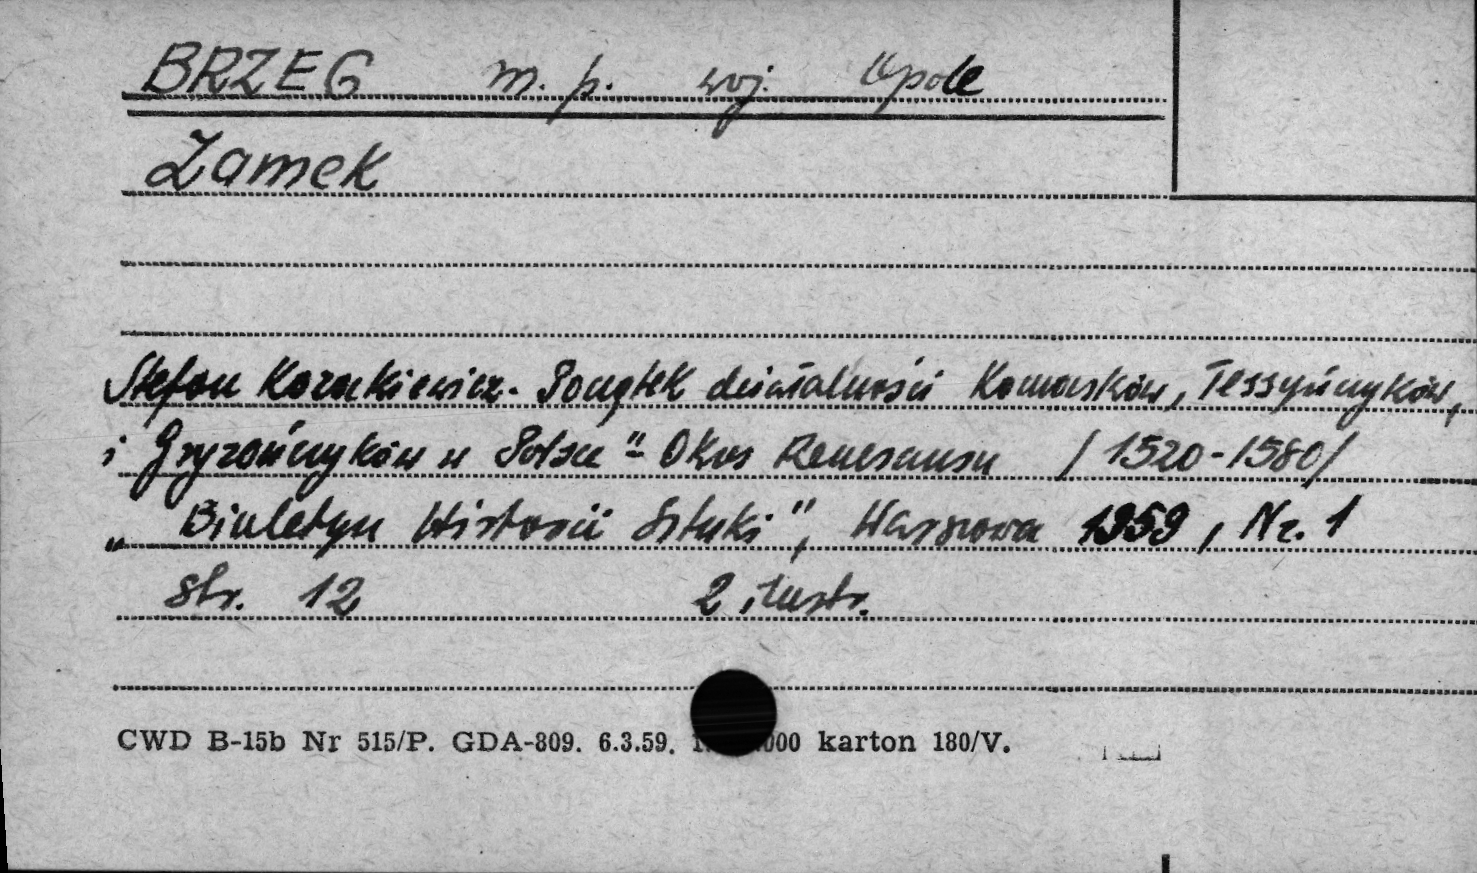 BRZEG m. p. woj. Opole
Zamek
Stefan Kozakiewicz - Początek działalności Komasków, Tessyńczyków,
i Gryzończyków w Polsce" - Okres Renesansu /1520-1580/
„Biuletyn Historii Sztuki", Warszawa 1959, Nr. 1
str. 12 2 ilustr.
CWD B-15b Nr 515/P. GDA-809. 6.3.59. 000 karton 180/V.